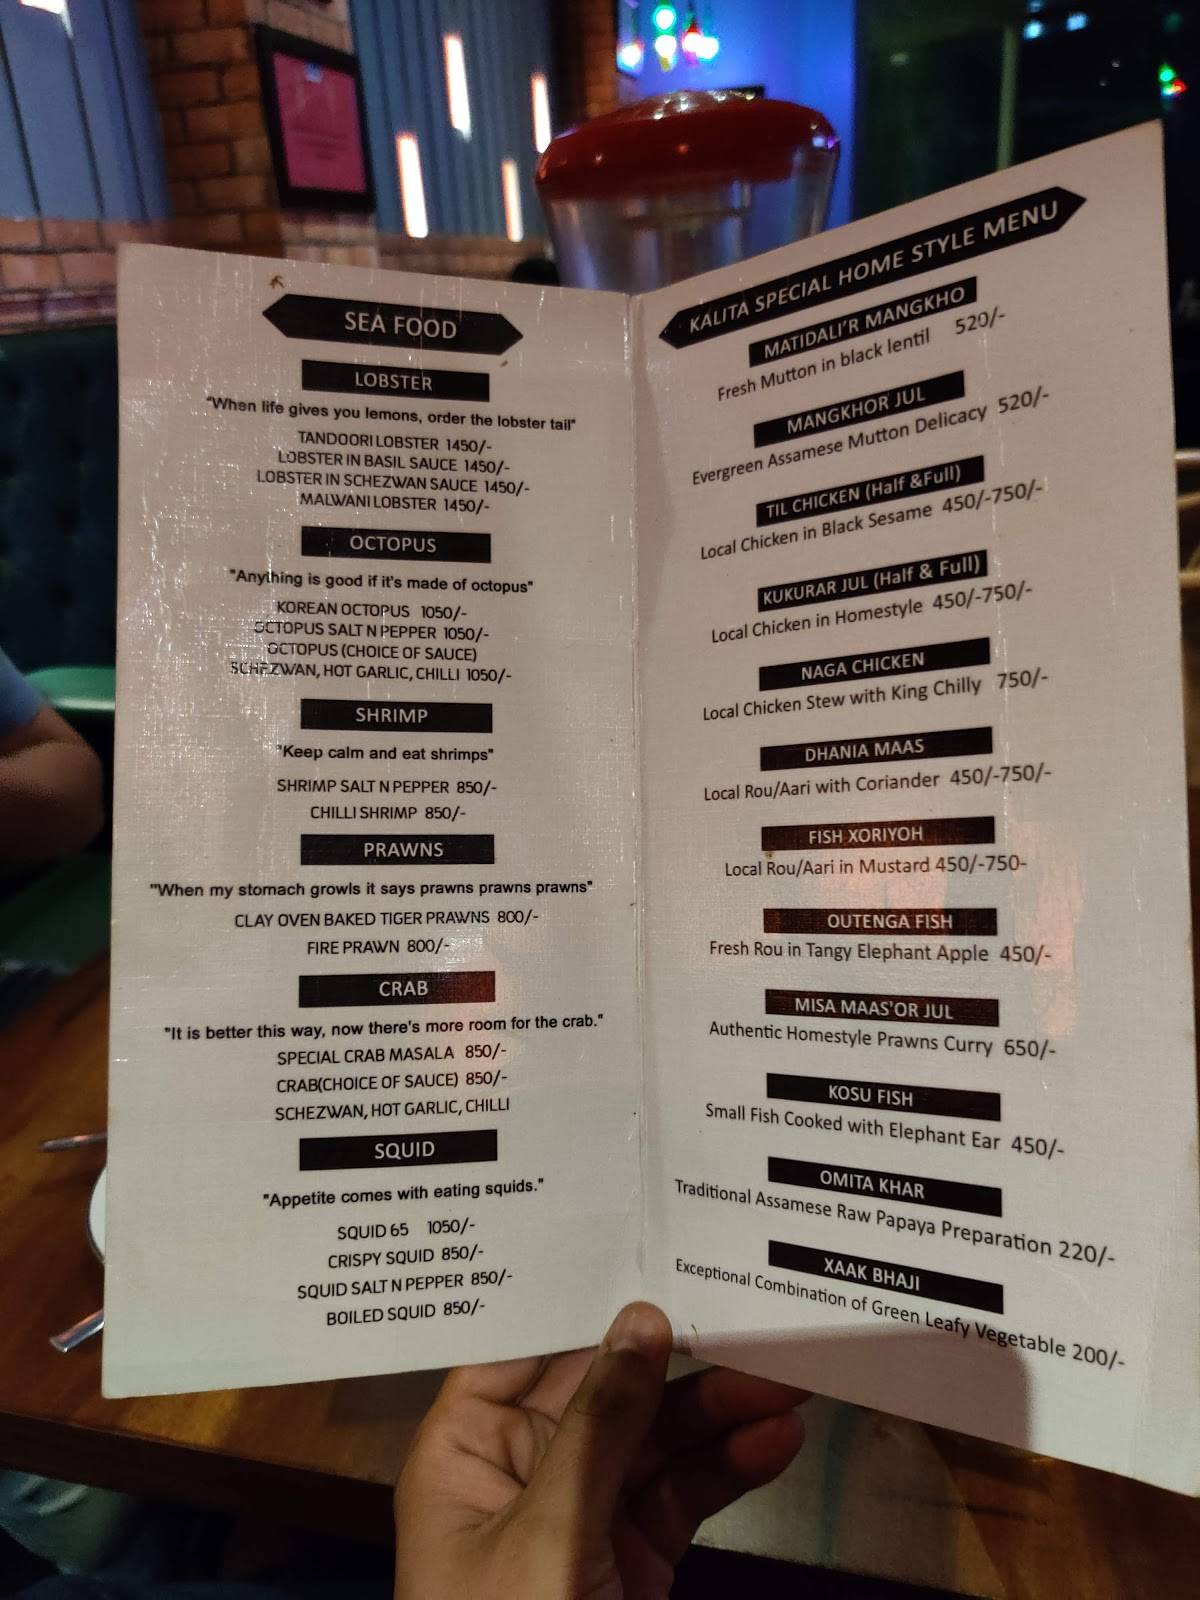 SEA FOOD
LOBSTER
"When life gives you lemons, order the lobster tail"
TANDOORI LOBSTER 1450/-
LOBSTER IN BASIL SAUCE 1450/-
LOBSTER IN SCHEZWAN SAUCE 1450/-
MALWANI LOBSTER 1450/-
OCTOPUS
"Anything is good if it's made of octopus"
KOREAN OCTOPUS 1050/-
OCTOPUS SALT N PEPPER 1050/-
OCTOPUS (CHOICE OF SAUCE)
SCHEZWAN, HOT GARLIC, CHILLI 1050/-
SHRIMP
"Keep calm and eat shrimps"
SHRIMP SALT N PEPPER 850/-
CHILLI SHRIMP 850/-
PRAWNS
"When my stomach growls it says prawns prawns prawns"
CLAY OVEN BAKED TIGER PRAWNS 800/-
FIRE PRAWN 800/-
CRAB
"It is better this way, now there's more room for the crab."
SPECIAL CRAB MASALA 850/-
CRAB(CHOICE OF SAUCE) 850/-
SCHEZWAN, HOT GARLIC, CHILLI
SQUID
"Appetite comes with eating squids."
SQUID 65 1050/-
CRISPY SQUID 850/-
SQUID SALT N PEPPER 850/-
BOILED SQUID 850/-
KALITA SPECIAL HOME STYLE MENU
MATIDALI'R MANGKHO
Fresh Mutton in black lentil 520/-
MANGKHOR JUL
Evergreen Assamese Mutton Delicacy 520/-
TIL CHICKEN (Half &Full)
Local Chicken in Black Sesame 450/-750/-
KUKURAR JUL (Half & Full)
Local Chicken in Homestyle 450/-750/-
NAGA CHICKEN
Local Chicken Stew with King Chilly 750/-
DHANIA MAAS
Local Rou/Aari with Coriander 450/-750/-
FISH XORIYOH
Local Rou/Aari in Mustard 450/-750-
OUTENGA FISH
Fresh Rou in Tangy Elephant Apple 450/-
MISA MAAS'OR JUL
Authentic Homestyle Prawns Curry 650/-
KOSU FISH
Small Fish Cooked with Elephant Ear 450/-
OMITA KHAR
Traditional Assamese Raw Papaya Preparation 220/-
XAAK BHAJI
Exceptional Combination of Green Leafy Vegetable 200/-